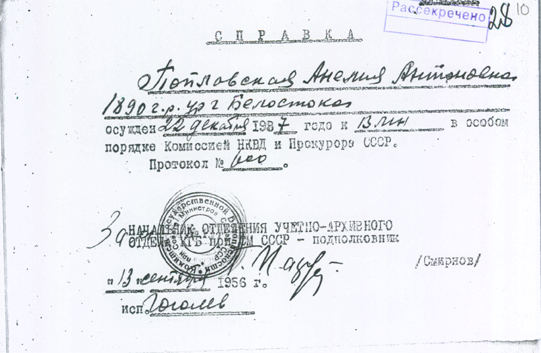 Рассекречено
28
10
СПРАВКА
Тепловская Анелия Антоновна
1890 г.р. ур г Белостока
осужден 22 декабря 1937 года к ВМН в особом
порядке Комиссией НКВД и Прокурора СССР.
Протокол №
За НАЧАЛЬНИК ОТДЕЛЕНИЯ УЧЕТНО-АРХИВНОГО
ОТДЕЛА КГБ при СМ СССР - подполковник
/Смирнов/
"13" сентября 1956 г.
исп Гоголев